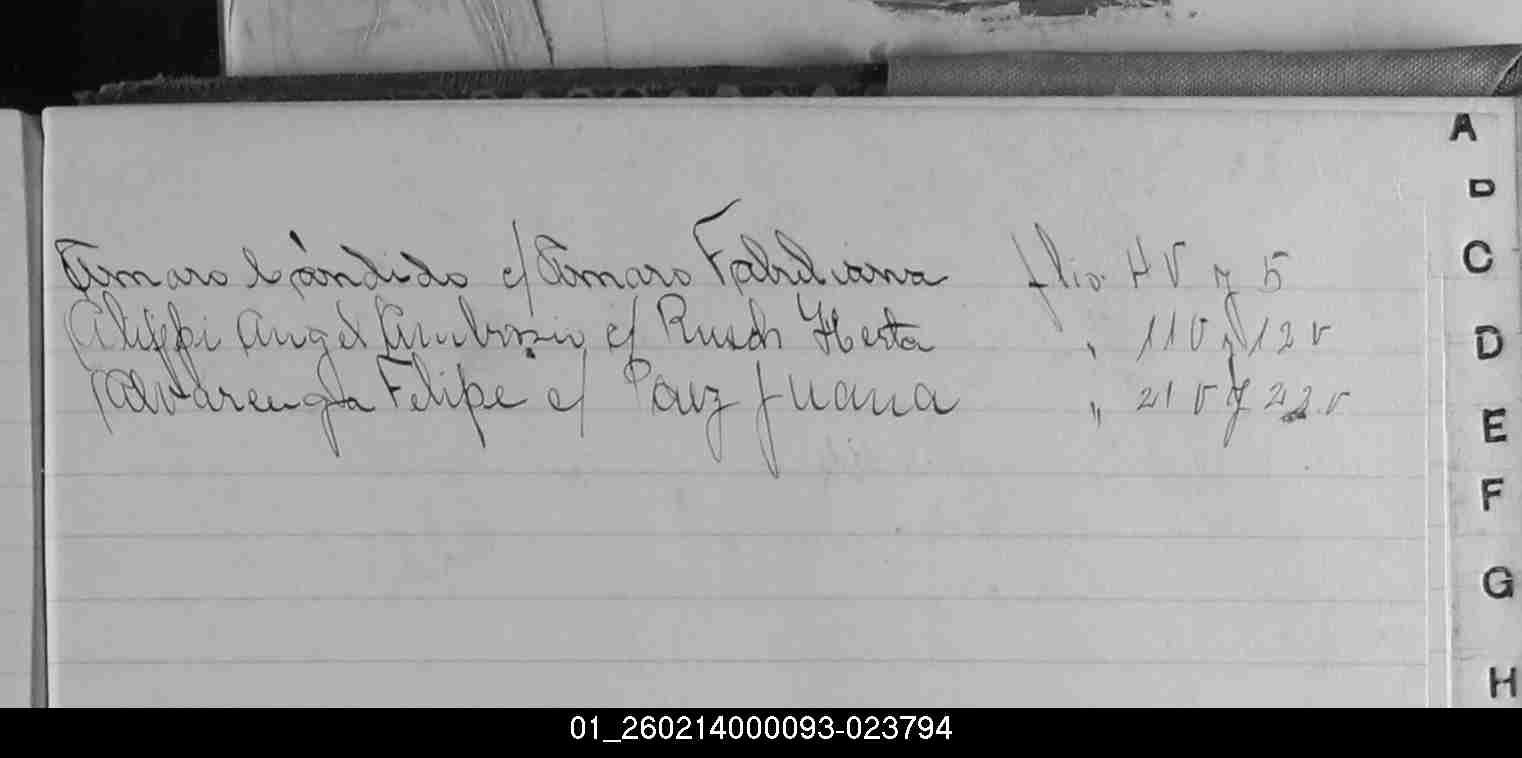 Amaro Cándido c/ Amaro Fabiliana flio. 4 v y 5
Aleppi Angel Ambrosio c/ Rusch Herta " 11 v y 12 v
Alvarenga Felipe c/ Paez Juana " 21 v y 22 v
A
B
C
D
E
F
G
H
01_260214000093-023794